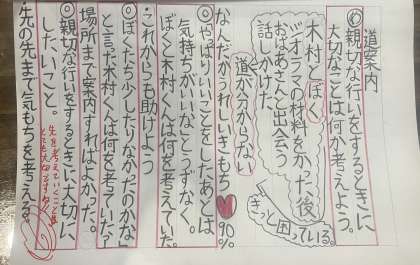 道案内
め親切な行いをするときに
大切なことは何か考えよう。
木村とぼく
ジオラマの材料をかった後
おばあさんと出会う
話しかけた
道が分からない
きっと困っている。
なんだかうれしいきもち♥90%
◎やはりいいことをしたあとは
気持ちがいいなとうずなく。
ぼくと木村くんは何を考えていた。
・これからも助けよう
◎「ぼくたち少したりなかったのかな」
と言った木村くんは何を考えていた?
場所まで案内すればよかった。
◎親切な行いをするときに、大切に
したいこと。
・先の先まで気もちを考える。
先を考えていくことも